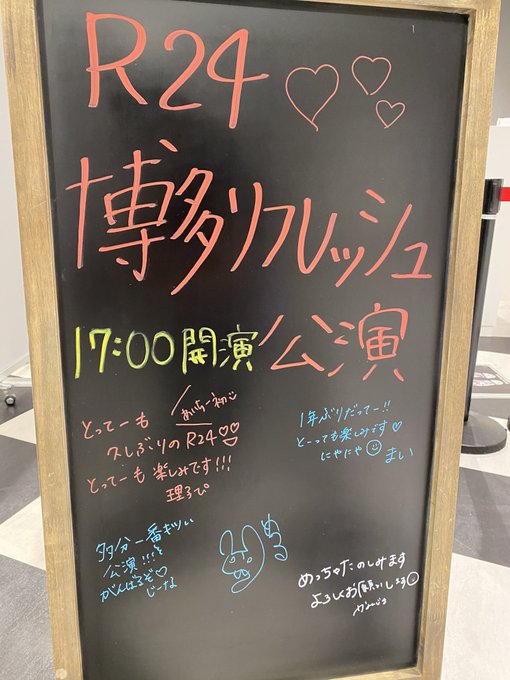 R24
博多リフレッシュ
17:00開演 公演
とってーも
久しぶりのR24♡♡
とってーも楽しみです!!!
理るぴ
1年ぶりだってー!!
とーっても楽しみです♡
にやにや
まい
多分一番キツい
公演!!!を
がんばるぞ♡
じーな
める
めっちゃたのしみます
よろしくお願いします